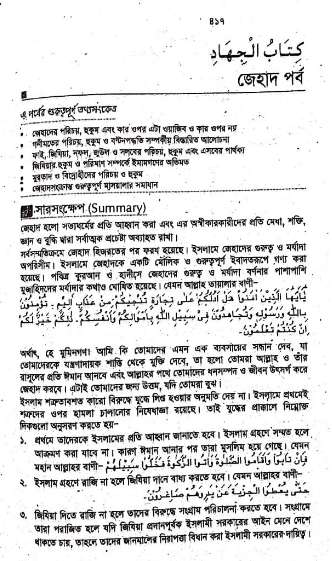 ৪১৭
كِتَابُ الْجِهَادِ
জেহাদ পর্ব
এ পর্বের গুরুত্বপূর্ণ তথ্যসংকেত
• জেহাদের পরিচয়, হুকুম এবং কার ওপর এটা ওয়াজিব ও কার ওপর নয়
• গনীমতের পরিচয়, হুকুম ও বণ্টনপদ্ধতি সম্পর্কীয় বিস্তারিত আলোচনা
• ফাই, জিযিয়া, নফল, জুউল ও সলবের পরিচয়, হুকুম এবং এসবের পার্থক্য
• জিযিয়ার হুকুম ও পরিমাণ সম্পর্কে ইমামগণের অভিমত
• মুরতাদ ও বিদ্রোহীদের পরিচয় ও হুকুম
• জেহাদসংক্রান্ত গুরুত্বপূর্ণ মাসয়ালার সমাধান
সারসংক্ষেপ (Summary)
জেহাদ হলো সত্যধর্মের প্রতি আহ্বান করা এবং এর অস্বীকারকারীদের প্রতি মেধা, শক্তি,
জ্ঞান ও বুদ্ধি দ্বারা সর্বাত্মক প্রচেষ্টা অব্যাহত রাখা।
সর্বসম্মতিক্রমে জেহাদ হিজরতের পর ফরয হয়েছে। ইসলামে জেহাদের গুরুত্ব ও মর্যাদা
অপরিসীম। ইসলামে জেহাদকে একটি মৌলিক ও গুরুত্বপূর্ণ ইবাদতরূপে গণ্য করা
হয়েছে। পবিত্র কুরআন ও হাদীসে জেহাদের গুরুত্ব ও মর্যাদা বর্ণনার পাশাপাশি
মুজাহিদদের মর্যাদার কথাও ঘোষিত হয়েছে। যেমন আল্লাহ তায়ালার বাণী–
يٰاَيُّهَا الَّذِيْنَ اٰمَنُوْا هَلْ اَدُلُّكُمْ عَلٰى تِجَارَةٍ تُنْجِيْكُمْ مِنْ عَذَابٍ اَلِيْمٍ ۔ تُؤْمِنُوْنَ
بِاللّٰهِ وَرَسُوْلِهٖ وَتُجَاهِدُوْنَ فِىْ سَبِيْلِ اللّٰهِ بِاَمْوَالِكُمْ وَاَنْفُسِكُمْ ذٰلِكُمْ خَيْرٌ لَّكُمْ
اِنْ كُنْتُمْ تَعْلَمُوْنَ۔
অর্থাৎ, হে মুমিনগণ! আমি কি তোমাদের এমন এক ব্যবসায়ের সন্ধান দেব, যা
তোমাদেরকে যন্ত্রণাদায়ক শাস্তি থেকে মুক্তি দেবে, তা হলো তোমরা আল্লাহ ও তাঁর
রাসূলের প্রতি ঈমান আনবে এবং আল্লাহর পথে তোমাদের ধনসম্পদ ও জীবন উৎসর্গ করে
জেহাদ করবে। এটাই তোমাদের জন্য উত্তম, যদি তোমরা বুঝ।
ইসলাম শত্রুতাবশত কারো বিরুদ্ধে যুদ্ধে লিপ্ত হওয়ার অনুমতি দেয় না। ইসলামে প্রথমেই
শত্রুদের ওপর হামলা চালানোর নিষেধাজ্ঞা রয়েছে। তাই যুদ্ধের প্রাক্কালে নিম্নোক্ত
দিকগুলো অনুসরণ করতে হয়–
১. প্রথমে তাদেরকে ইসলামের প্রতি আহ্বান জানাতে হবে। ইসলাম গ্রহণে সম্মত হলে
আক্রমণ করা যাবে না। কারণ ঈমান আনার পর তারা মুসলিম হয়ে গেছে। যেমন
মহান আল্লাহর বাণী– فَاِنْ تَابُوْا وَاَقَامُوا الصَّلٰوةَ وَاٰتَوُا الزَّكٰوةَ فَخَلُّوْا سَبِيْلَهُمْ
২. ইসলাম গ্রহণে রাজি না হলে জিযিয়া দানে বাধ্য করতে হবে। যেমন আল্লাহর বাণী–
حَتّٰى يُعْطُوا الْجِزْيَةَ عَنْ يَدٍ وَّهُمْ صَاغِرُوْنَ۔
৩. জিযিয়া দিতে রাজি না হলে তাদের বিরুদ্ধে সংগ্রাম পরিচালনা করতে হবে। সংগ্রামে
তারা পরাজিত হলে যদি জিযিয়া প্রদানপূর্বক ইসলামী সরকারের আইন মেনে দেশে
থাকতে চায়, তাহলে তাদের জানমালের নিরাপত্তা বিধান করা ইসলামী সরকারের দায়িত্ব।